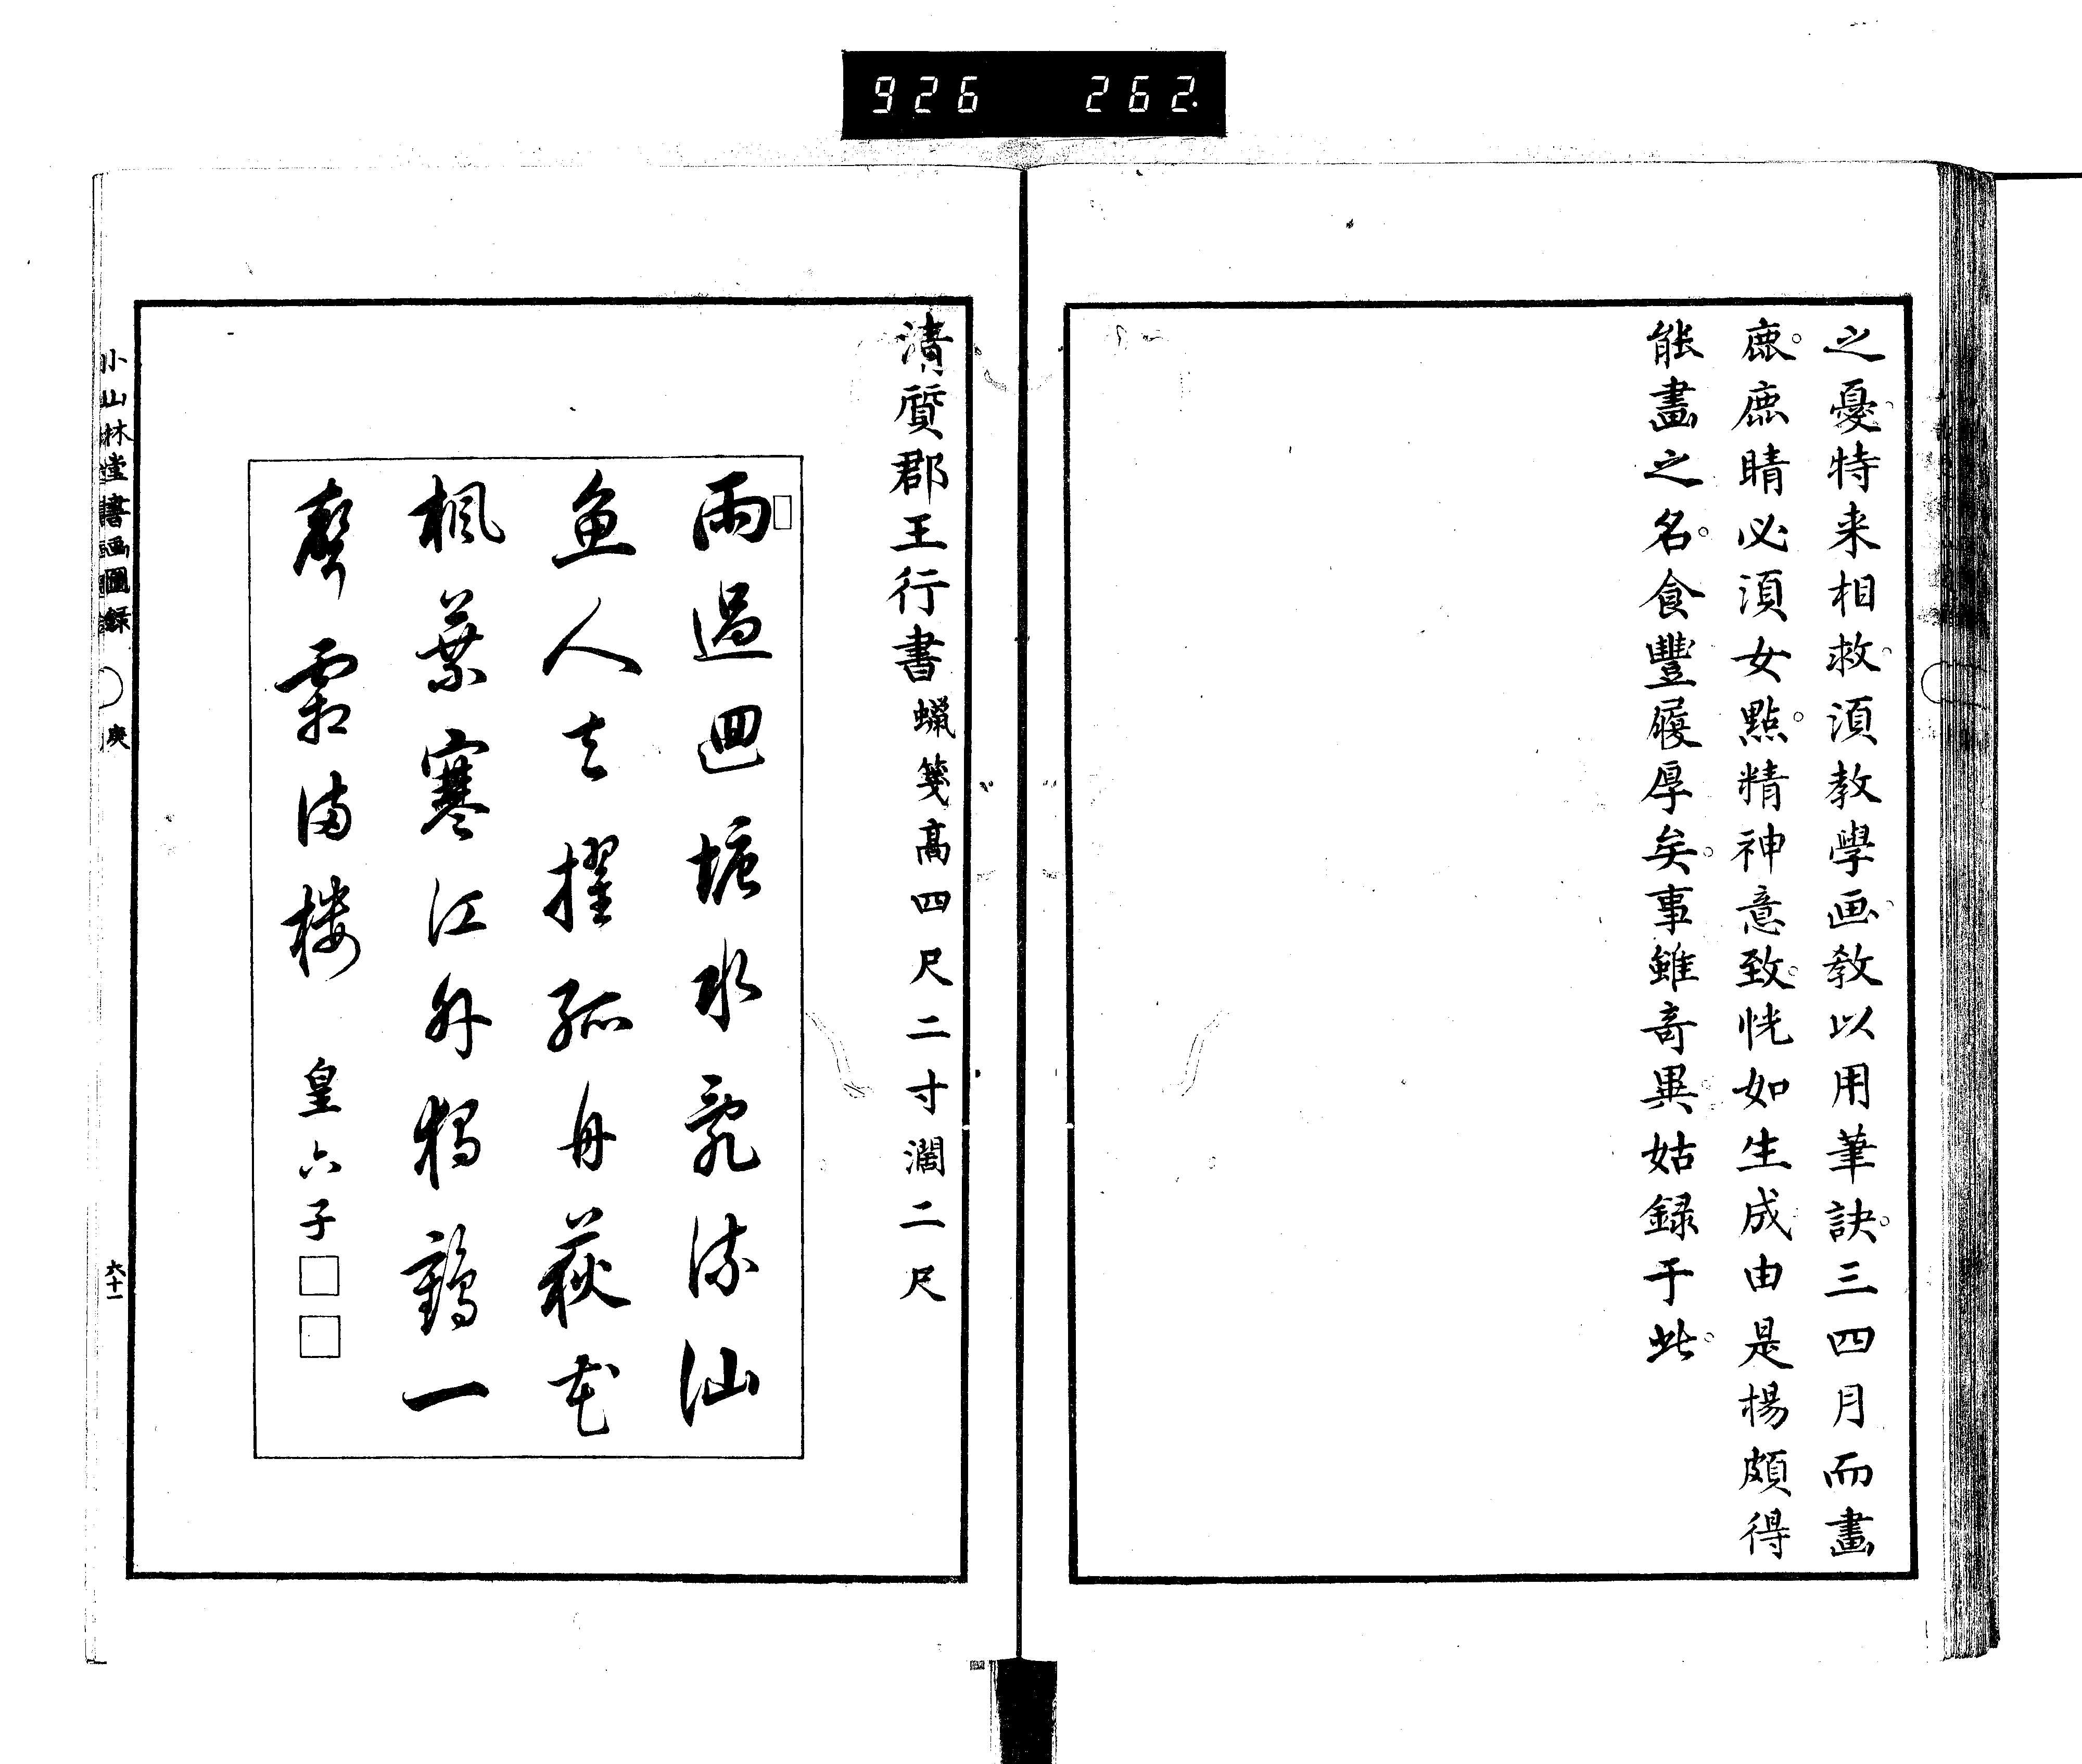 926 262
之憂特来相救湏教學画教以用筆訣三四月而畫
鹿鹿睛必湏女點精神意致恍如生成由是楊頗得
能畫之名食豐履厚矣事雖奇異姑録于此
清質郡王行書蠟箋高四尺二寸濶二尺
雨過迴塘水亂流汕
魚人去擢孤舟荻花
楓葉寒江外獨鶴一
聲霜滿樓 皇六子
小山林堂書画圖録 庚 六十一